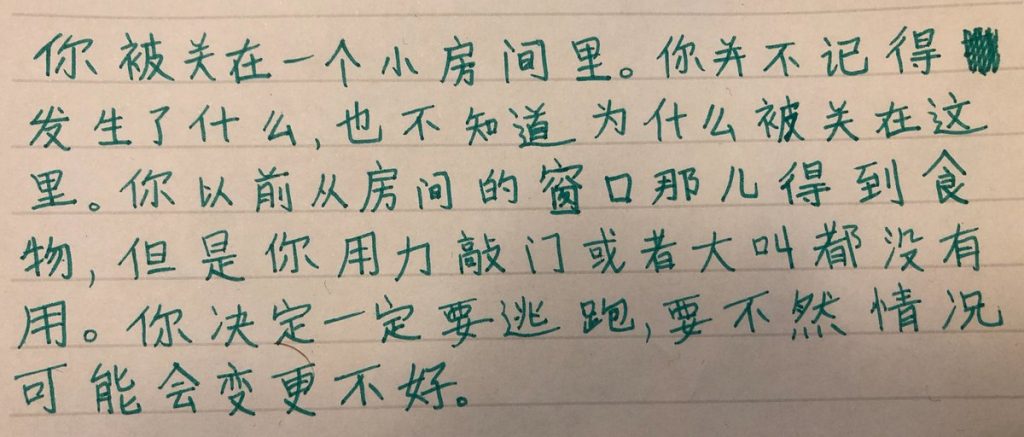 你被关在一个小房间里。你并不记得
发生了什么,也不知道为什么被关在这
里。你以前从房间的窗口那儿得到食
物,但是你用力敲门或者大叫都没有
用。你决定一定要逃跑,要不然情况
可能会变更不好。